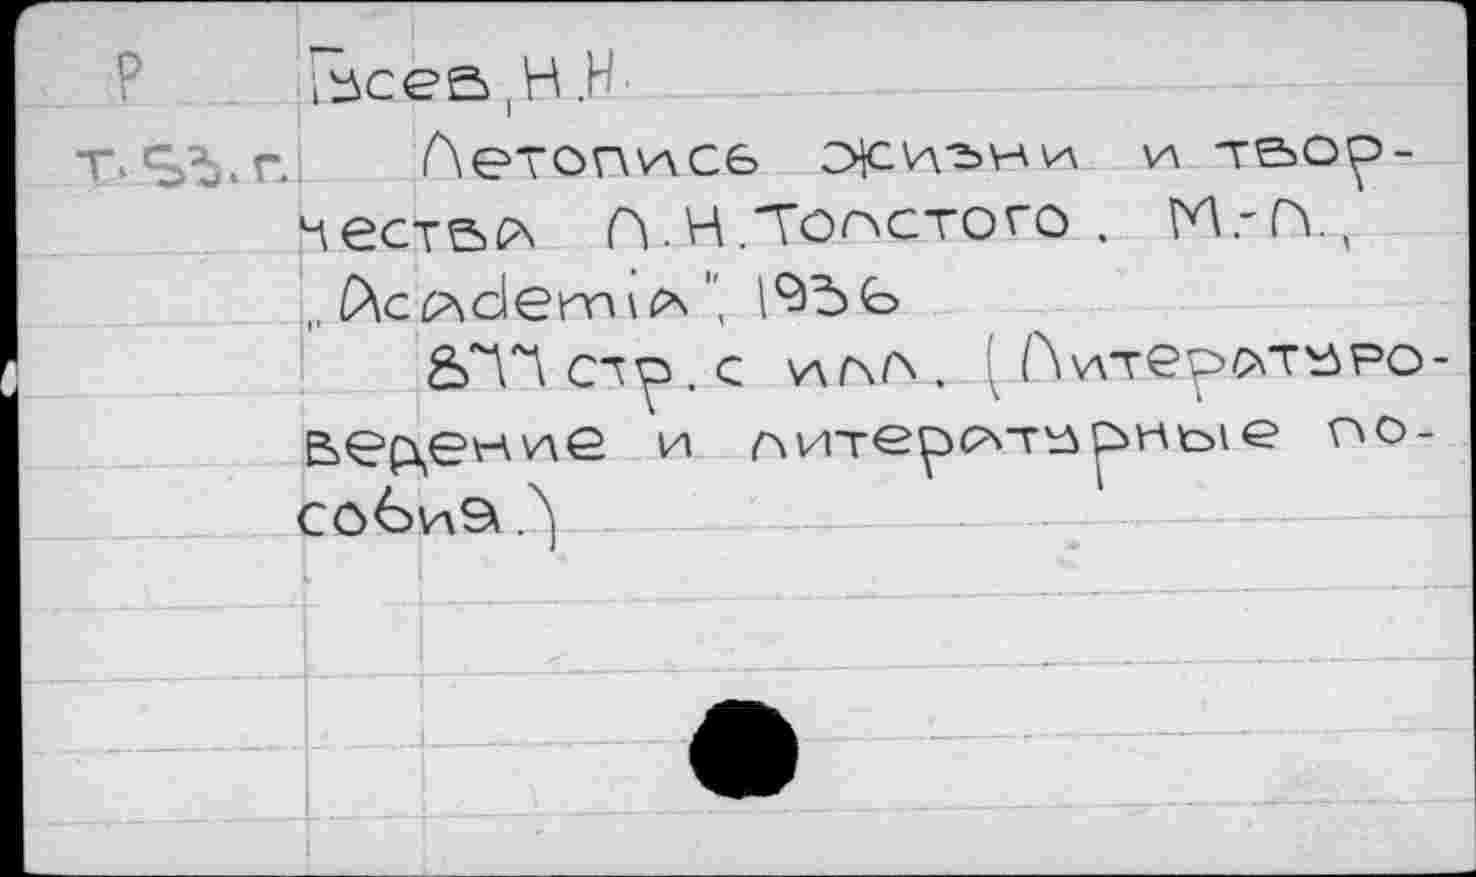 Р Гусев, Н.Н.
Т.53.г. Летопись жизни и твор-
чества Л.Н.Толстого. М.-Л.,
„Academia", 1936
877 стр. с илл. (Литературо-
ведение и литературные по-
собия.)